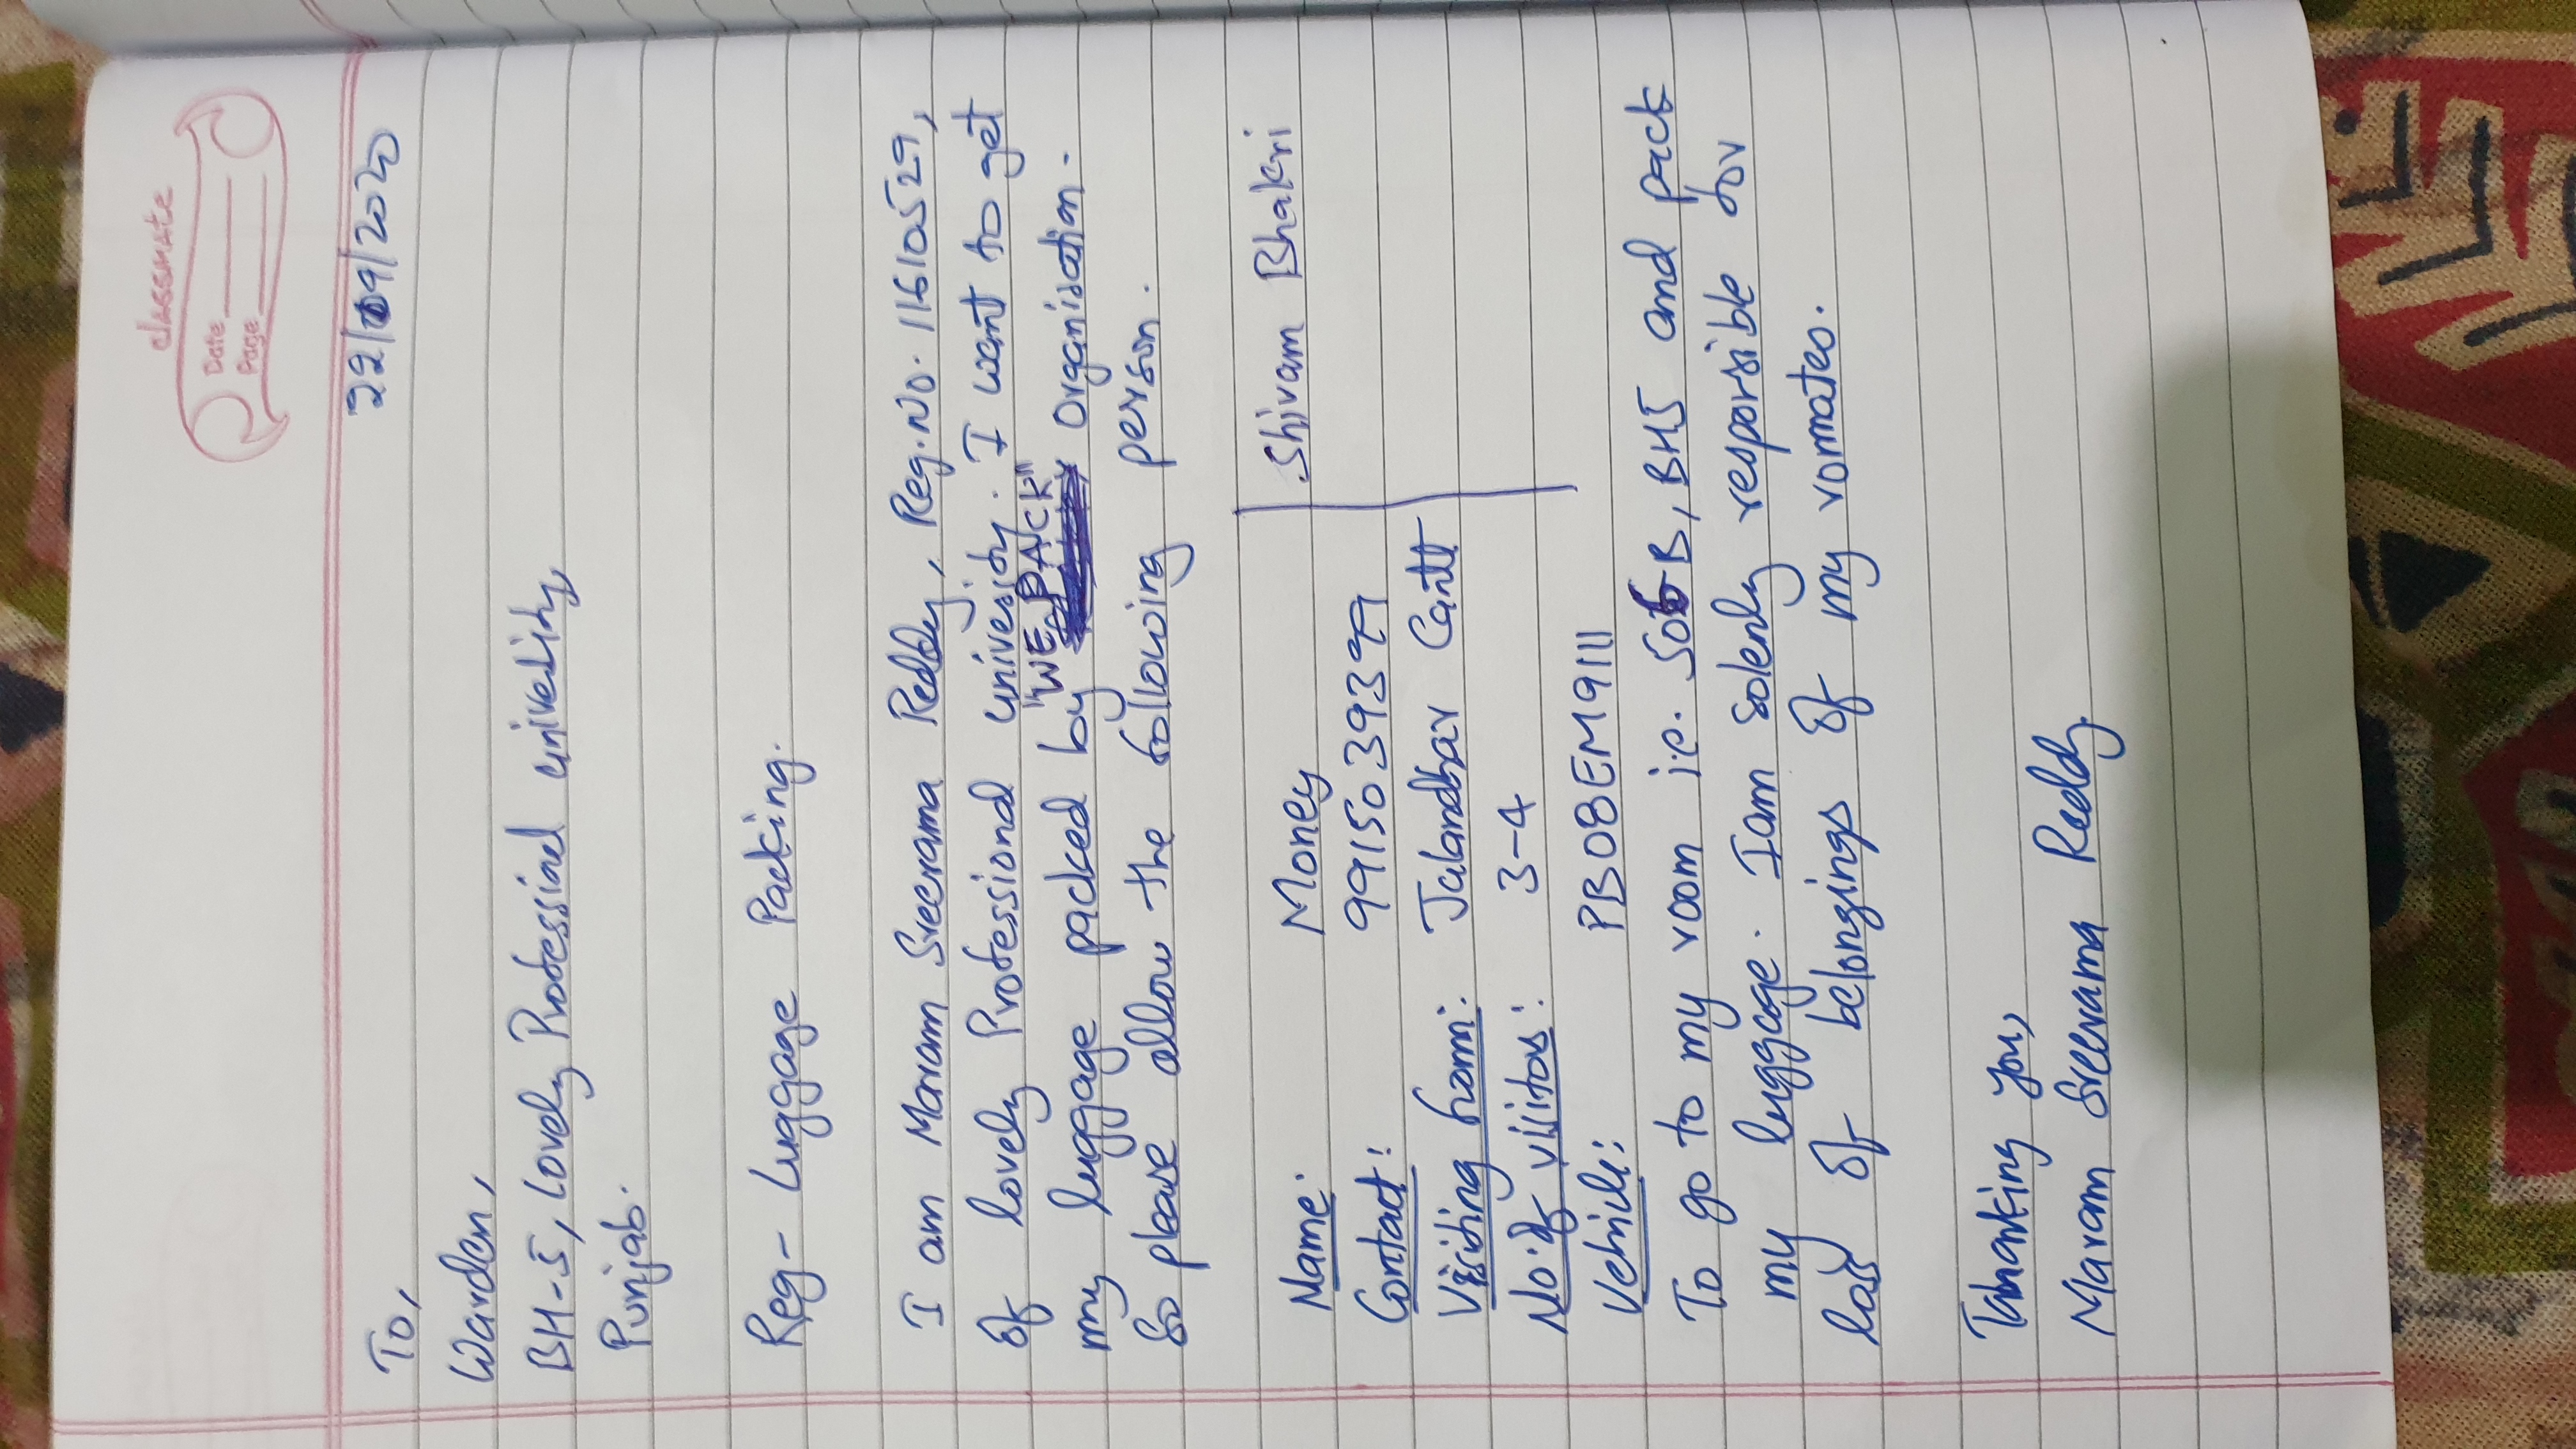 classmate
Date
Page
22/09/2020
To,
Warden,
BH-5, Lovely Professinal univesity,
Punjab.
Reg- Luggage Packing.
I am Maram Sreerama Reddy, Reg.No. 11610529,
of lovely Professional univesity. I want to get
my luggage packed by "WE PACK" Organisation.
So please allow the following person.
Name: Money Shivam Bhakri
Contact: 9915039399
Visiting from: Jalandhar Cantt
No.of visitors: 3-4
Vehicle: PB08EM9111
To go to my room i.e. 506B, BH5 and pack
my luggage. I am solenly responsible for
of belongings of my rommates.
Tahanking you,
Maram Sreerama Reddy.